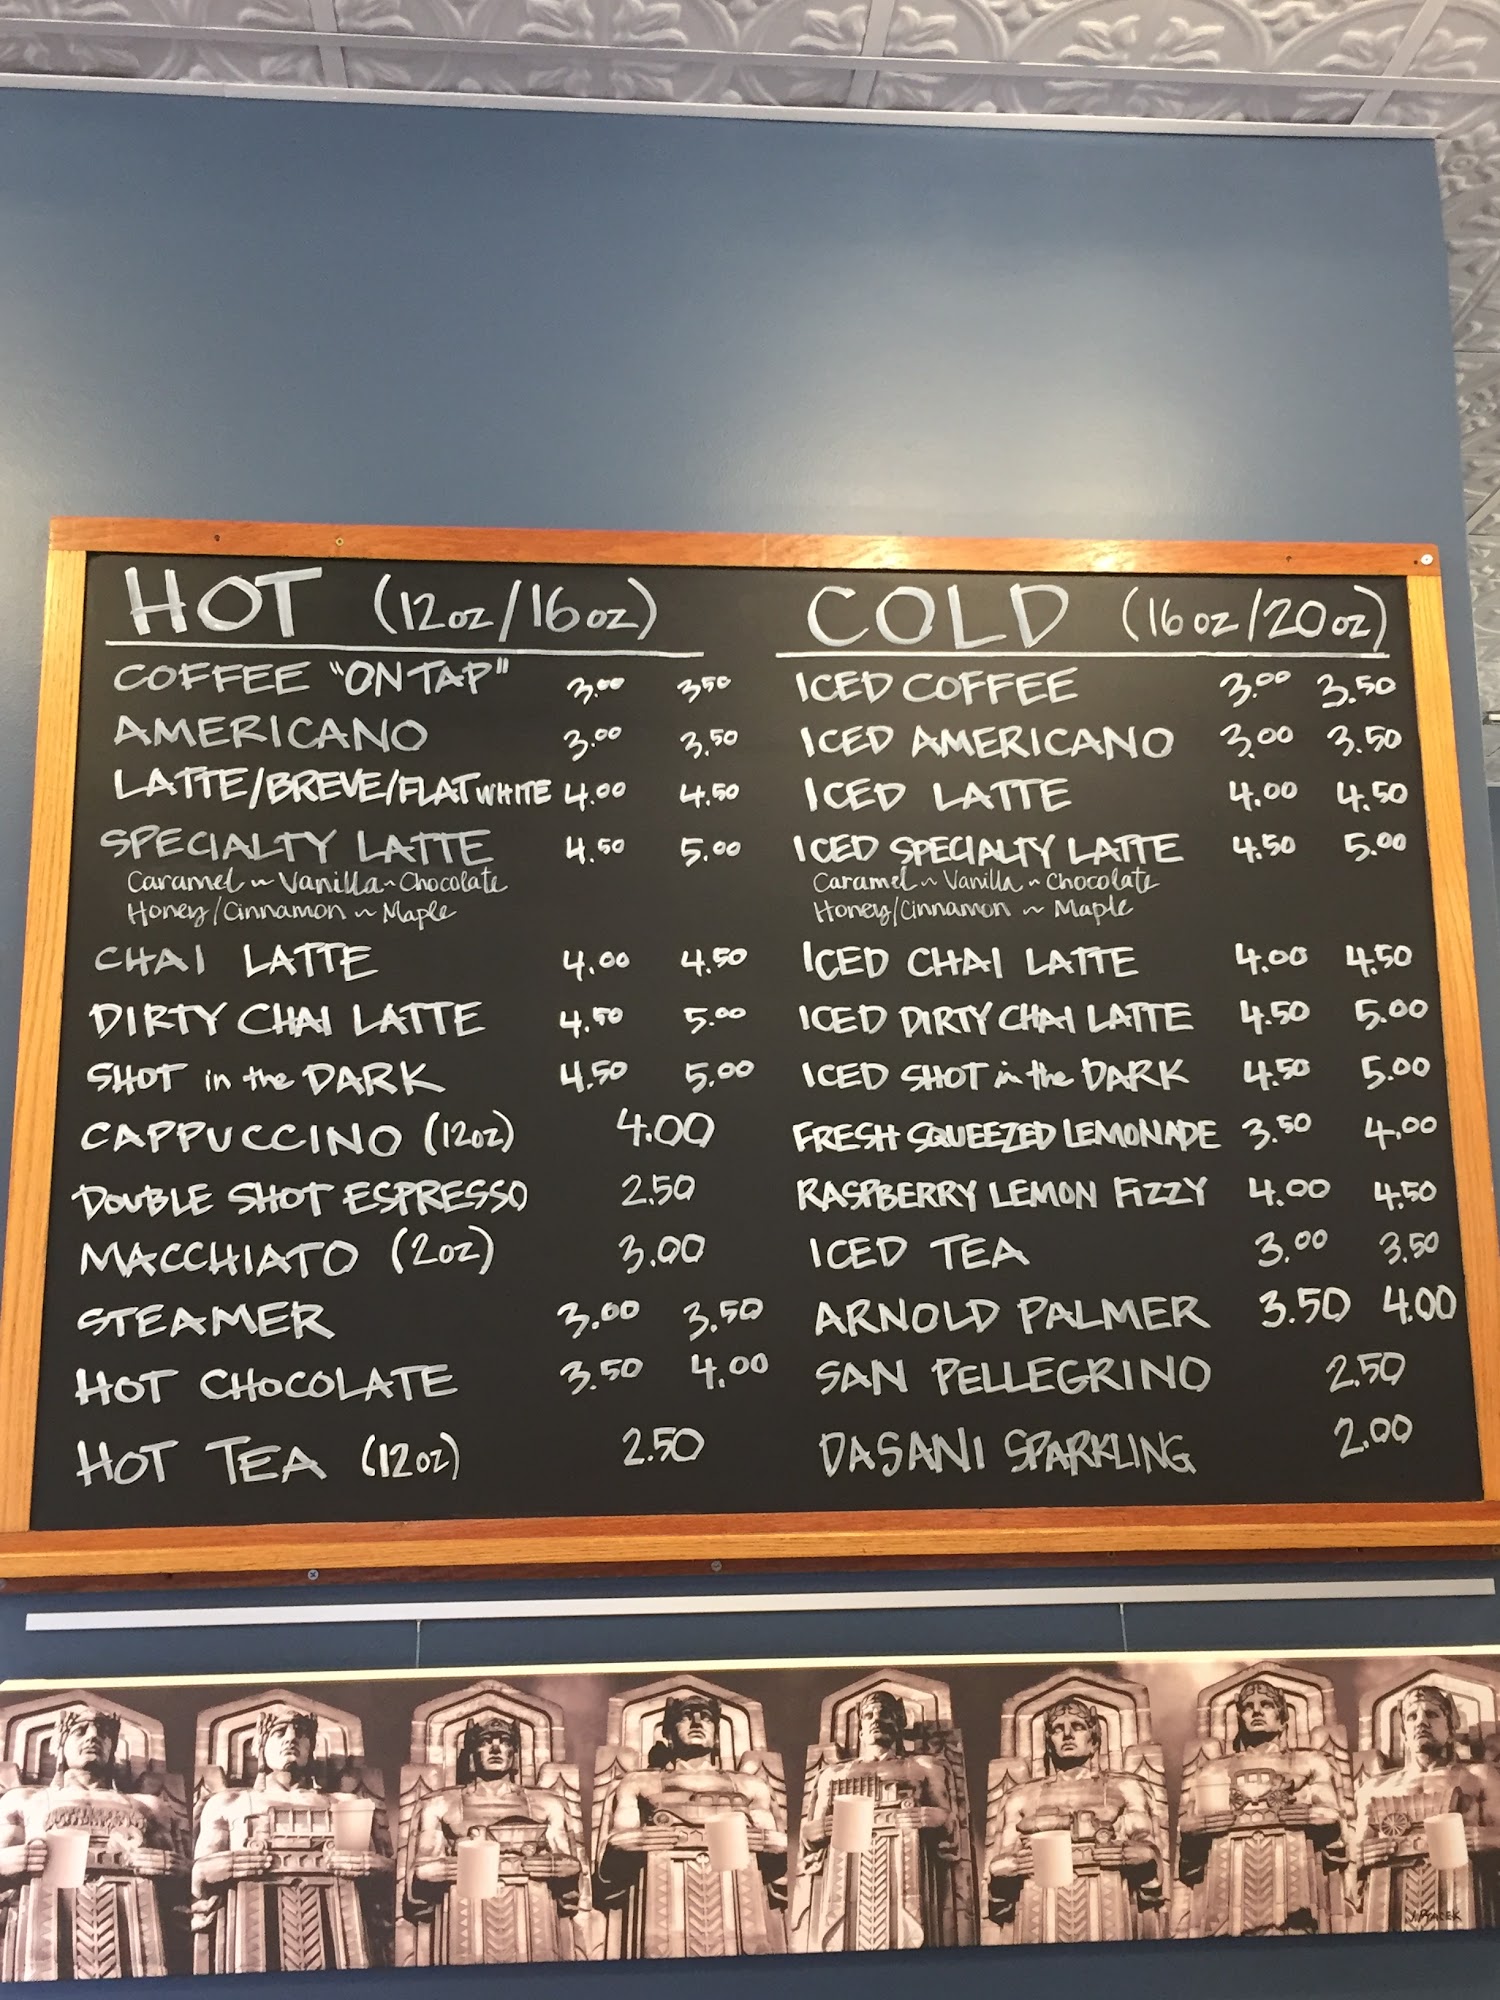 HOT (12oz/16oz)
COFFEE "ON TAP" 3.00 3.50
AMERICANO 3.00 3.50
LATTE/BREVE/FLAT WHITE 4.00 4.50
SPECIALTY LATTE 4.50 5.00
Caramel ~ Vanilla ~ Chocolate
Honey/Cinnamon ~ Maple
CHAI LATTE 4.00 4.50
DIRTY CHAI LATTE 4.50 5.00
SHOT in the DARK 4.50 5.00
CAPPUCCINO (12oz) 4.00
DOUBLE SHOT ESPRESSO 2.50
MACCHIATO (2oz) 3.00
STEAMER 3.00 3.50
HOT CHOCOLATE 3.50 4.00
HOT TEA (12oz) 2.50
COLD (16oz/20oz)
ICED COFFEE 3.00 3.50
ICED AMERICANO 3.00 3.50
ICED LATTE 4.00 4.50
ICED SPECIALTY LATTE 4.50 5.00
Caramel ~ Vanilla ~ Chocolate
Honey/Cinnamon ~ Maple
ICED CHAI LATTE 4.00 4.50
ICED DIRTY CHAI LATTE 4.50 5.00
ICED SHOT in the DARK 4.50 5.00
FRESH SQUEEZED LEMONADE 3.50 4.00
RASPBERRY LEMON FIZZY 4.00 4.50
ICED TEA 3.00 3.50
ARNOLD PALMER 3.50 4.00
SAN PELLEGRINO 2.50
DASANI SPARKLING 2.00
J. PTACEK